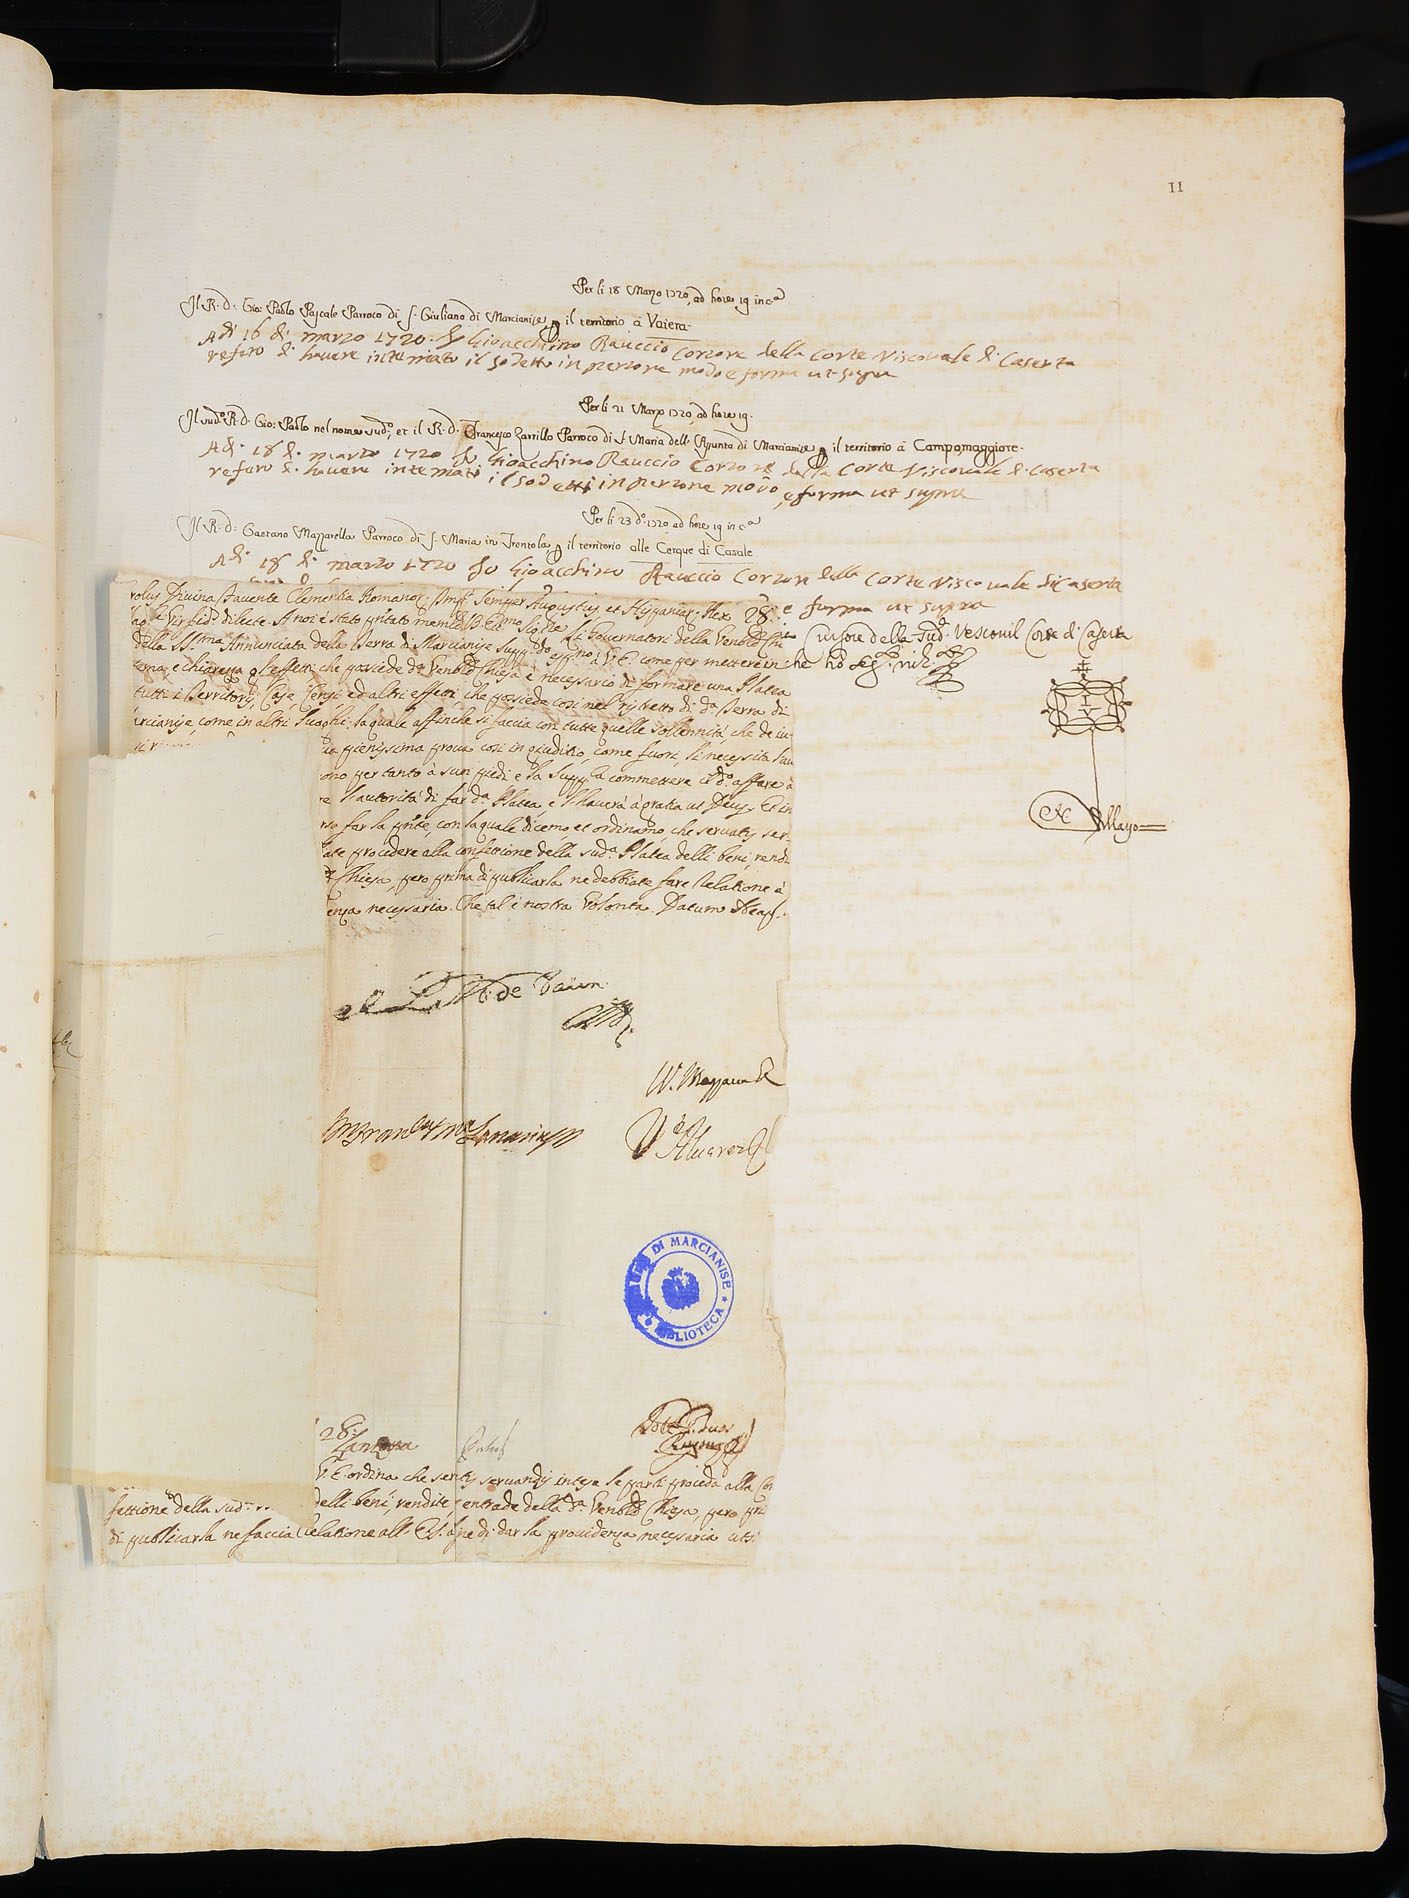 II
Per li 18 Marzo 1720, ad hore 19 in c.a
Il R. D. Gio: Paolo Pascale Parroco di S. Giuliano di Marcianise, p il territorio à Vaiera.
A dì 16 di marzo 1720. Io Gioacchino Rauccio Corzore della Corte Viscovale di Caserta
refero di havere intimato il sodetto in perzone modo e forma ut supra
Per li 21 Marzo 1720, ad hore 19.
Il sud.o R. D. Gio: Paolo nel nome sud.o, et il R. D. Francesco Zarrillo Parroco di S. Maria dell' Assunta di Marcianise p il territorio à Campomaggiore.
A di 18 di marzo 1720 Io Gioacchino Rauccio Corzore della Corte Viscovale di Caserta
refero di havere intemati il sodetti in perzone modo, e forma ut supra
Per li 23 d.o 1720 ad hore 19 in c.a
Il R. D. Gaetano Mazzarella Parroco di S. Maria in Trentola, p il territorio alle Cerque di Casale
A di 18 di marzo 1720 Io Gioacchino Rauccio Corzore della Corte Viscovale di Caserta
e forma ut supra
Cursore della sud.a Vescovil Corte di Caserta
rolus Divina Favente Clementia Romanor. Imp.r Semper Augustus, et Hispaniar. Rex 28.
fid.s dilecte. A noi è stato pntato memle Ecc.mo Sig.re Li Governatori della Venble Chi
della SS.ma Annunciata della Terra di Marcianise supp.do espno à V.E. come per mettere in
e chiarezza gl'effetti che possiede d.a Venble Chiesa è necessario di formare una Platea
tutti i Territorij, Case, Censi ed altri effetti, che possiede così nel ristretto di d.a Terra di
arcianise, come in altri Luoghi; la quale affinche si faccia con tutte quelle sollennità, che de iu
pienissima prova così in giuditio, come fuori, li necessita l'au
ono per tanto à suoi piedi e la supp.ca commettere il d.o affare à
re l'autorità di far d.a Platea, e l'haverà à gratia ut Deus. Et in
so far la pnte, con la quale dicemo, et ordinamo, che servatis ser
ate procedere alla confettione della sud.a Platea delli beni, rendi
Chiesa, pero prima di publicarla ne debbiate fare relatione à
enza necessaria. Che tal è nostra Volontà. Datum Neap.
Alvarez
COMUNE DI MARCIANISE * BIBLIOTECA
28.
V.E. ordina che servatis servandis intese le parti proceda alla con
fettione della sud.a delli beni, rendite, entrade della d.a Venble Chiesa, pero pri
di publicarla ne faccia relatione all' E.S. afine di dar la providenza necessaria ut s.